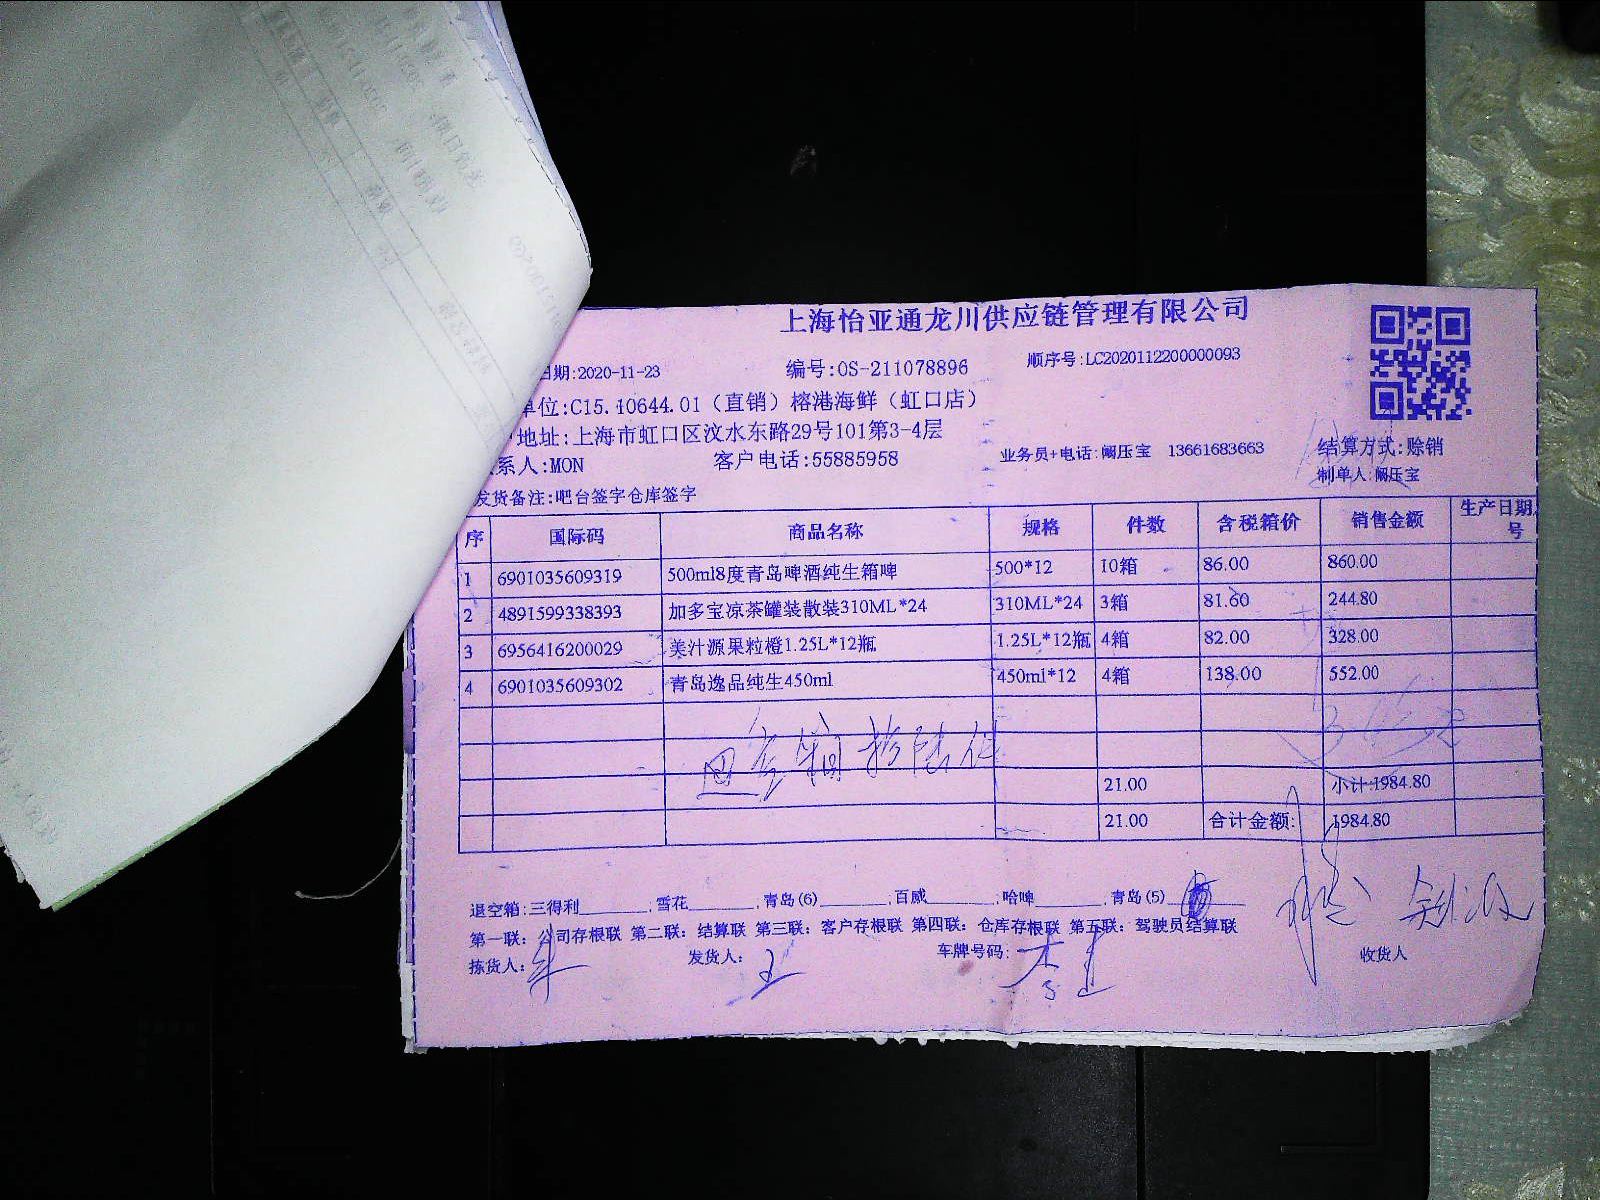 上海怡亚通龙川供应链管理有限公司
日期:2020-11-23 编号:OS-211078896 顺序号:LC2020112200000093
单位:C15.10644.01（直销）榕港海鲜（虹口店）
地址:上海市虹口区汶水东路29号101第3-4层
系人:MON 客户电话:55885958 业务员+电话:阚压宝 13661683663 结算方式:赊销
制单人:阚压宝
发货备注:吧台签字仓库签字
序 国际码 商品名称 规格 件数 含税箱价 销售金额 生产日期 号
1 6901035609319 500ml8度青岛啤酒纯生箱啤 500*12 10箱 86.00 860.00
2 4891599338393 加多宝凉茶罐装散装310ML*24 310ML*24 3箱 81.60 244.80
3 6956416200029 美汁源果粒橙1.25L*12瓶 1.25L*12瓶 4箱 82.00 328.00
4 6901035609302 青岛逸品纯生450ml 450ml*12 4箱 138.00 552.00
21.00 小计:1984.80
21.00 合计金额: 1984.80
退空箱:三得利______,雪花______,青岛(6)______,百威______,哈啤______,青岛(5)______
第一联：公司存根联 第二联：结算联 第三联：客户存根联 第四联：仓库存根联 第五联：驾驶员结算联
拣货人: 发货人: 车牌号码: 收货人